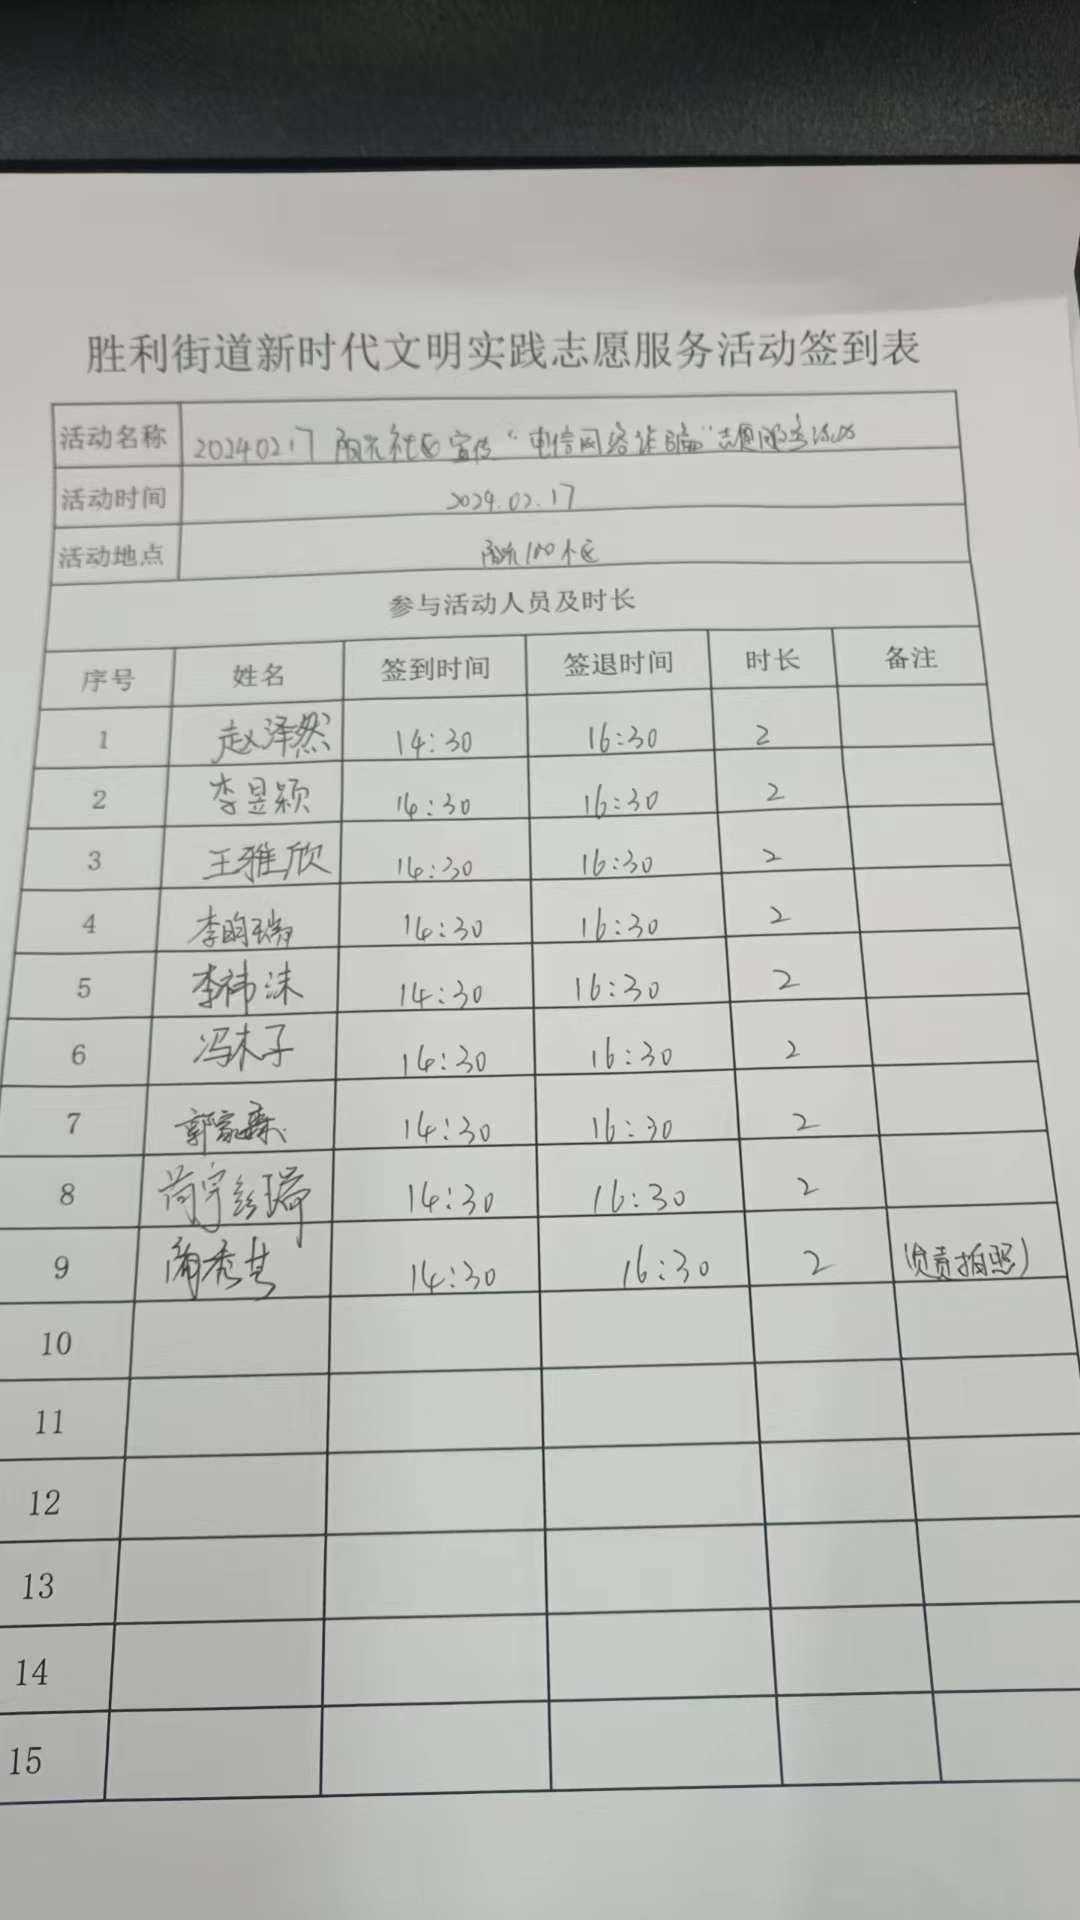 胜利街道新时代文明实践志愿服务活动签到表
活动名称 20240217 阳光社区宣传“电信网络诈骗”志愿服务活动
活动时间 2024.02.17
活动地点 阳光100小区
参与活动人员及时长
序号 姓名 签到时间 签退时间 时长 备注
1 赵泽然 14:30 16:30 2
2 李昱颖 14:30 16:30 2
3 王雅欣 14:30 16:30 2
4 李昀瑞 14:30 16:30 2
5 李祎沫 14:30 16:30 2
6 冯木子 14:30 16:30 2
7 郭家 14:30 16:30 2
8 14:30 16:30 2
9 14:30 16:30 2 (负责拍照)
10
11
12
13
14
15